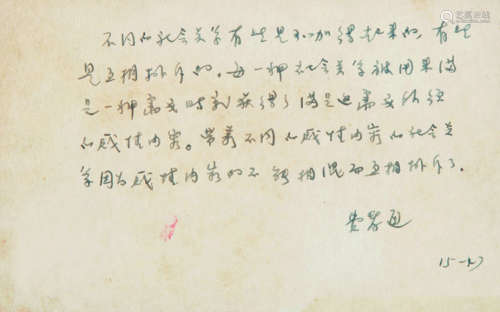 不同的社会关系有些是可加得起来的，有些
是互相排斥的。每一种社会关系被用来满
足一种需要时就获得了满足这需要所须
的感情内容。带着不同的感情内容的社会关
系因为感情内容的不能相混而互相排斥了。
费孝通